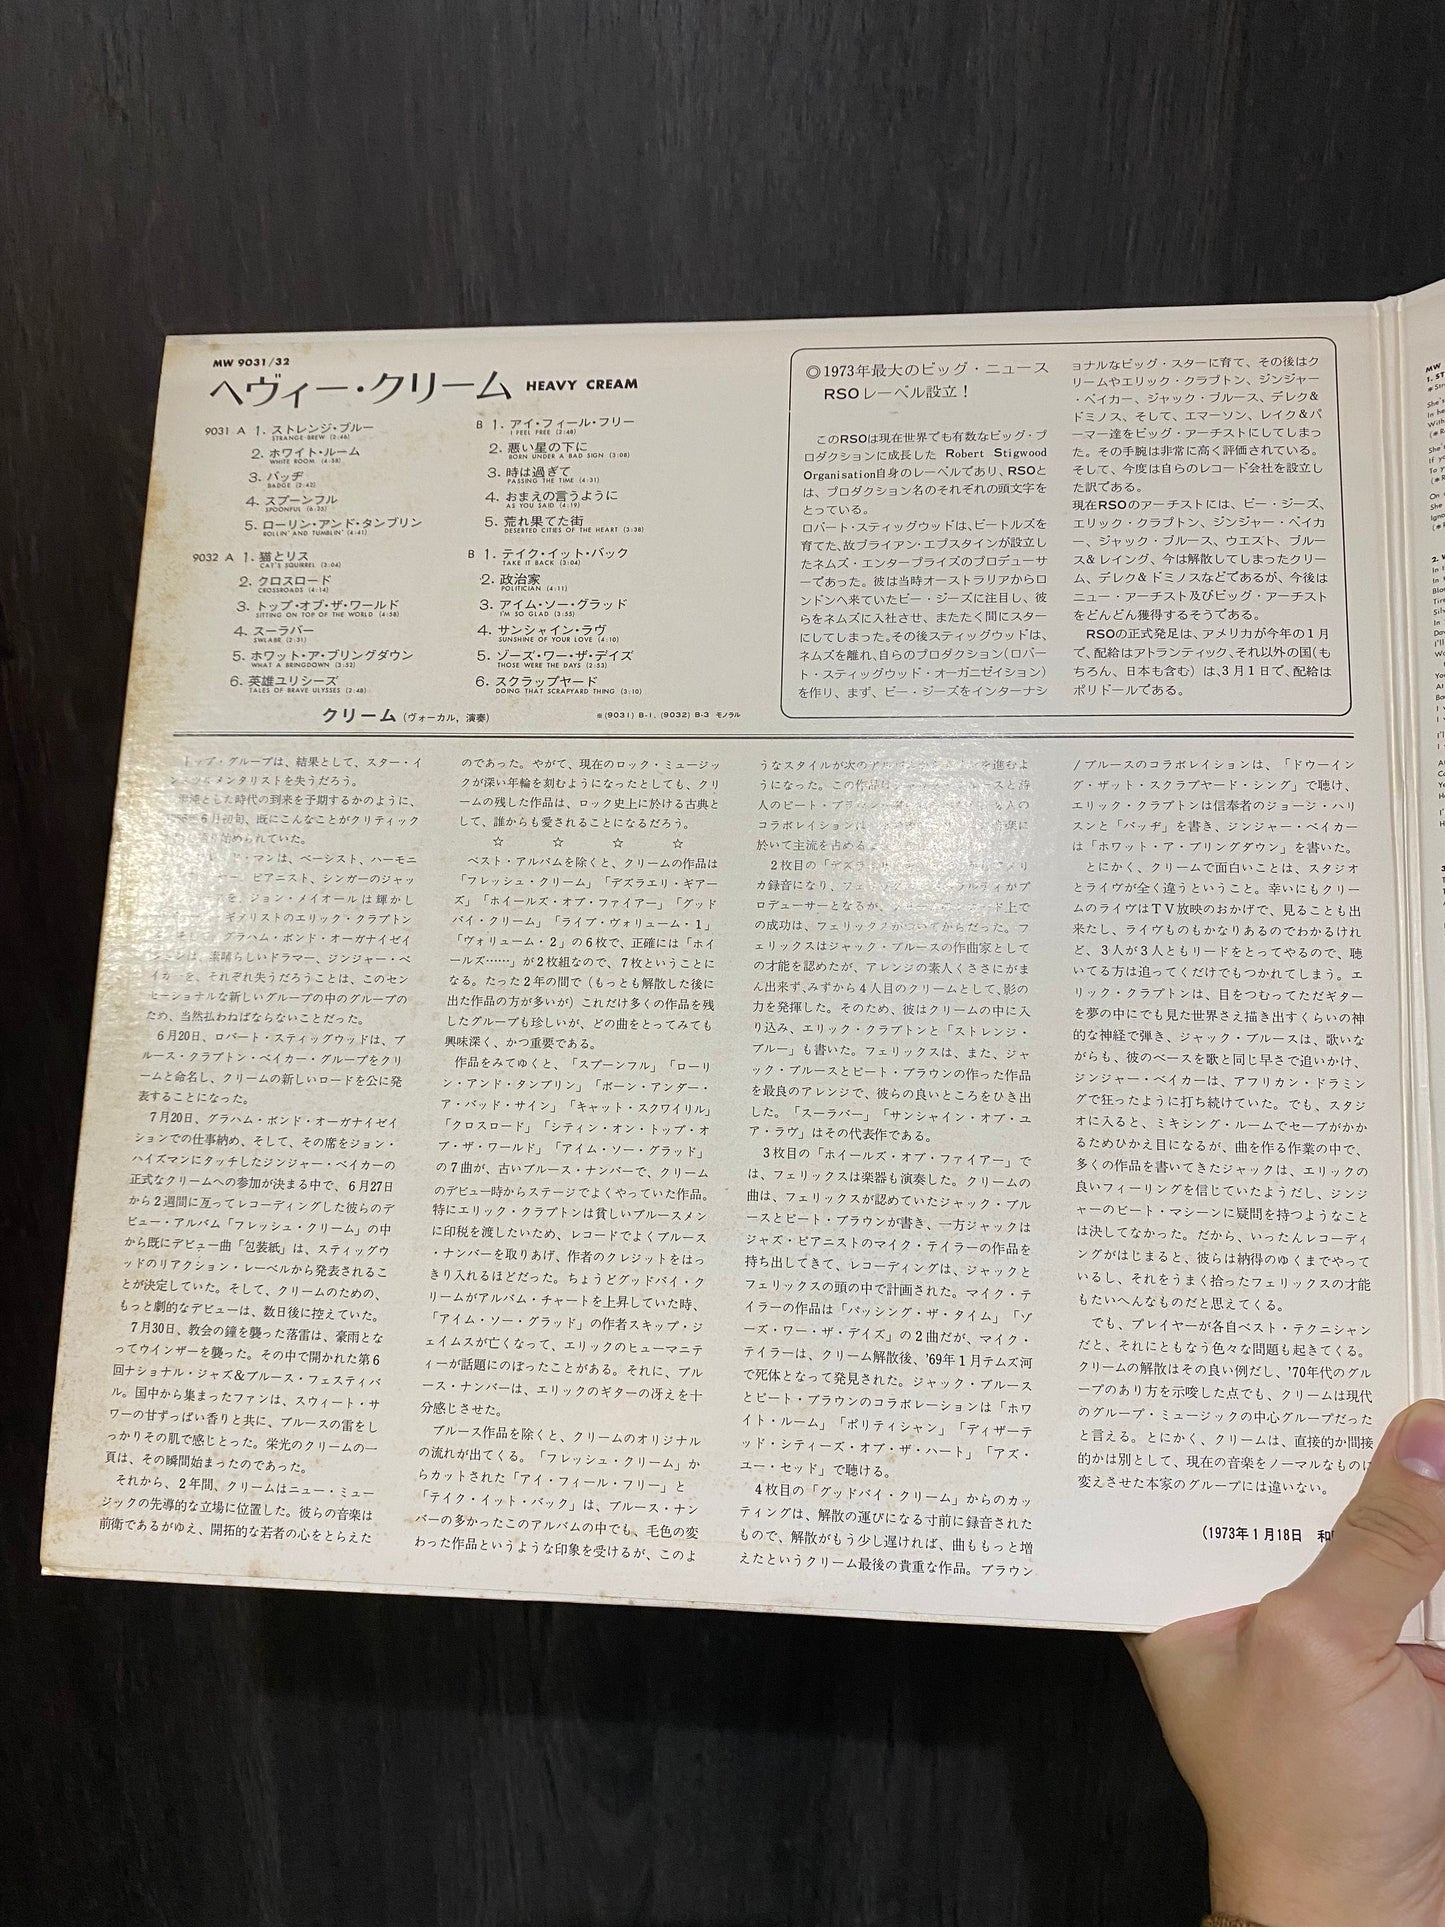 MW 9031/32
ヘヴィー・クリーム HEAVY CREAM
9031 A 1. ストレンジ・ブルー
STRANGE BREW (2:46)
2. ホワイト・ルーム
WHITE ROOM (4:58)
3. バッヂ
BADGE (2:42)
4. スプーンフル
SPOONFUL (6:35)
5. ローリン・アンド・タンブリン
ROLLIN' AND TUMBLIN' (4:41)
B 1. アイ・フィール・フリー
I FEEL FREE (2:48)
2. 悪い星の下に
BORN UNDER A BAD SIGN (3:08)
3. 時は過ぎて
PASSING THE TIME (4:31)
4. おまえの言うように
AS YOU SAID (4:19)
5. 荒れ果てた街
DESERTED CITIES OF THE HEART (3:38)
9032 A 1. 猫とリス
CAT'S SQUIREL (3:04)
2. クロスロード
CROSSROADS (4:14)
3. トップ・オブ・ザ・ワールド
SITTING ON TOP OF THE WORLD (4:58)
4. スーラバー
SWLABR (2:31)
5. ホワット・ア・ブリングダウン
WHAT A BRINGDOWN (3:52)
6. 英雄ユリシーズ
TALES OF BRAVE ULYSSES (2:48)
B 1. テイク・イット・バック
TAKE IT BACK (3:04)
2. 政治家
POLITICIAN (4:11)
3. アイム・ソー・グラッド
I'M SO GLAD (3:55)
4. サンシャイン・ラヴ
SUNSHINE OF YOUR LOVE (4:10)
5. ゾーズ・ワー・ザ・デイズ
THOSE WERE THE DAYS (2:53)
6. スクラップヤード
DOING THAT SCRAPYARD THING (3:10)
クリーム (ヴォーカル, 演奏)
※(9031) B-1, (9032) B-3 モノラル
◎1973年最大のビッグ・ニュース
RSOレーベル設立!
このRSOは現在世界でも有数なビッグ・プ
ロダクションに成長した Robert Stigwood
Organisation自身のレーベルであり、RSOと
は、プロダクション名のそれぞれの頭文字を
とっている。
ロバート・スティッグウッドは、ビートルズを
育てた、故ブライアン・エプスタインが設立し
たネムズ・エンタープライズのプロデューサ
ーであった。彼は当時オーストラリアからロ
ンドンへ来ていたビー・ジーズに注目し、彼
らをネムズに入社させ、またたく間にスター
にしてしまった。その後スティッグウッドは、
ネムズを離れ、自らのプロダクション(ロバー
ト・スティッグウッド・オーガニゼイション)
を作り、まず、ビー・ジーズをインターナシ
ョナルなビッグ・スターに育て、その後はク
リームやエリック・クラプトン、ジンジャー
・ベイカー、ジャック・ブルース、デレク&
ドミノス、そして、エマーソン、レイク&パ
ーマー達をビッグ・アーチストにしてしまっ
た。その手腕は非常に高く評価されている。
そして、今度は自らのレコード会社を設立し
た訳である。
現在RSOのアーチストには、ビー・ジーズ、
エリック・クラプトン、ジンジャー・ベイカ
ー、ジャック・ブルース、ウエスト、ブルー
ス&レイング、今は解散してしまったクリー
ム、デレク&ドミノスなどであるが、今後は
ニュー・アーチスト及びビッグ・アーチスト
をどんどん獲得するそうである。
RSOの正式発足は、アメリカが今年の1月
で、配給はアトランティック、それ以外の国(も
ちろん、日本も含む)は、3月1日で、配給は
ポリドールである。
トップ・グループは、結果として、スター・イ
ンスツルメンタリストを失うだろう。
した時代の到来を予期するかのように、
年6月初旬、既にこんなことがクリティック
始められていた。
マンは、ベーシスト、ハーモニ
ピアニスト、シンガーのジャッ
を、ジョン・メイオールは輝かし
ギタリストのエリック・クラプトン
グラハム・ボンド・オーガナイゼイ
ションは、素晴らしいドラマー、ジンジャー・ベ
イカーを、それぞれ失うだろうことは、このセン
セーショナルな新しいグループの中のグループの
ため、当然払わねばならないことだった。
6月20日、ロバート・スティッグウッドは、ブ
ルース・クラプトン・ベイカー・グループをクリ
ームと命名し、クリームの新しいロードを公に発
表することになった。
7月20日、グラハム・ボンド・オーガナイゼイ
ションでの仕事納め、そして、その席をジョン・
ハイズマンにタッチしたジンジャー・ベイカーの
正式なクリームへの参加が決まる中で、6月27日
から2週間に亙ってレコーディングした彼らのデ
ビュー・アルバム「フレッシュ・クリーム」の中
から既にデビュー曲「包装紙」は、スティッグウ
ッドのリアクション・レーベルから発表されるこ
とが決定していた。そして、クリームのための、
もっと劇的なデビューは、数日後に控えていた。
7月30日、教会の鐘を襲った落雷は、豪雨とな
ってウインザーを襲った。その中で開かれた第6
回ナショナル・ジャズ&ブルース・フェスティバ
ル。国中から集まったファンは、スウィート・サ
ワーの甘ずっぱい香りと共に、ブルースの雷をし
っかりその肌で感じとった。栄光のクリームの一
頁は、その瞬間始まったのであった。
それから、2年間、クリームはニュー・ミュー
ジックの先導的な立場に位置した。彼らの音楽は
前衛であるがゆえ、開拓的な若者の心をとらえた
のであった。やがて、現在のロック・ミュージッ
クが深い年輪を刻むようになったとしても、クリ
ームの残した作品は、ロック史上に於ける古典と
して、誰からも愛されることになるだろう。
☆ ☆ ☆ ☆
ベスト・アルバムを除くと、クリームの作品は
「フレッシュ・クリーム」「デズラエリ・ギアー
ズ」「ホイールズ・オブ・ファイアー」「グッド
バイ・クリーム」「ライブ・ヴォリューム・1」
「ヴォリューム・2」の6枚で、正確には「ホイ
ールズ……」が2枚組なので、7枚ということに
なる。たった2年の間で(もっとも解散した後に
出た作品の方が多いが)これだけ多くの作品を残
したグループも珍しいが、どの曲をとってみても
興味深く、かつ重要である。
作品をみてゆくと、「スプーンフル」「ローリ
ン・アンド・タンブリン」「ボーン・アンダー・
ア・バッド・サイン」「キャット・スクワイリル」
「クロスロード」「シティン・オン・トップ・オ
ブ・ザ・ワールド」「アイム・ソー・グラッド」
の7曲が、古いブルース・ナンバーで、クリーム
のデビュー時からステージでよくやっていた作品。
特にエリック・クラプトンは貧しいブルースメン
に印税を渡したいため、レコードでよくブルース
・ナンバーを取りあげ、作者のクレジットをはっ
きり入れるほどだった。ちょうどグッドバイ・ク
リームがアルバム・チャートを上昇していた時、
「アイム・ソー・グラッド」の作者スキップ・ジ
ェイムスが亡くなって、エリックのヒューマニテ
ィーが話題にのぼったことがある。それに、ブル
ース・ナンバーは、エリックのギターの冴えを十
分感じさせた。
ブルース作品を除くと、クリームのオリジナル
の流れが出てくる。「フレッシュ・クリーム」か
らカットされた「アイ・フィール・フリー」と
「テイク・イット・バック」は、ブルース・ナン
バーの多かったこのアルバムの中でも、毛色の変
わった作品というような印象を受けるが、このよ
うなスタイルが次のアルバム を進むよ
うになった。この作品は スと詩
人のピート・ブラウン 人の
コラボレイションは 楽に
於いて主流を占める
2枚目の「デズラ アメリ
カ録音になり、フェリックス・パパラルディがプ
ロデューサーとなるが、 ド上で
の成功は、フェリックスがついてからだった。フ
ェリックスはジャック・ブルースの作曲家として
の才能を認めたが、アレンジの素人くささにがま
ん出来ず、みずから4人目のクリームとして、影の
力を発揮した。そのため、彼はクリームの中に入
り込み、エリック・クラプトンと「ストレンジ・
ブルー」も書いた。フェリックスは、また、ジャ
ック・ブルースとピート・ブラウンの作った作品
を最良のアレンジで、彼らの良いところをひき出
した。「スーラバー」「サンシャイン・オブ・ユ
ア・ラヴ」はその代表作である。
3枚目の「ホイールズ・オブ・ファイアー」で
は、フェリックスは楽器も演奏した。クリームの
曲は、フェリックスが認めていたジャック・ブル
ースとピート・ブラウンが書き、一方ジャックは
ジャズ・ピアニストのマイク・テイラーの作品を
持ち出してきて、レコーディングは、ジャックと
フェリックスの頭の中で計画された。マイク・テ
イラーの作品は「パッシング・ザ・タイム」「ゾ
ーズ・ワー・ザ・デイズ」の2曲だが、マイク・
テイラーは、クリーム解散後、'69年1月テムズ河
で死体となって発見された。ジャック・ブルース
とピート・ブラウンのコラボレーションは「ホワ
イト・ルーム」「ポリティシャン」「ディザーテ
ッド・シティーズ・オブ・ザ・ハート」「アズ・
ユー・セッド」で聴ける。
4枚目の「グッドバイ・クリーム」からのカッ
ティングは、解散の運びになる寸前に録音された
もので、解散がもう少し遅ければ、曲ももっと増
えたというクリーム最後の貴重な作品。ブラウン
/ブルースのコラボレイションは、「ドゥーイン
グ・ザット・スクラプヤード・シング」で聴け、
エリック・クラプトンは信奉者のジョージ・ハリ
スンと「バッヂ」を書き、ジンジャー・ベイカー
は「ホワット・ア・ブリングダウン」を書いた。
とにかく、クリームで面白いことは、スタジオ
とライヴが全く違うということ。幸いにもクリー
ムのライヴはTV放映のおかげで、見ることも出
来たし、ライヴものもかなりあるのでわかるけれ
ど、3人が3人ともリードをとってやるので、聴
いてる方は追ってくだけでもつかれてしまう。エ
リック・クラプトンは、目をつむってただギター
を夢の中にでも見た世界さえ描き出すくらいの神
的な神経で弾き、ジャック・ブルースは、歌いな
がらも、彼のベースを歌と同じ早さで追いかけ、
ジンジャー・ベイカーは、アフリカン・ドラミン
グで狂ったように打ち続けていた。でも、スタジ
オに入ると、ミキシング・ルームでセーブがかか
るためひかえ目になるが、曲を作る作業の中で、
多くの作品を書いてきたジャックは、エリックの
良いフィーリングを信じていたようだし、ジンジ
ャーのビート・マシーンに疑問を持つようなこと
は決してなかった。だから、いったんレコーディ
ングがはじまると、彼らは納得のゆくまでやって
いるし、それをうまく拾ったフェリックスの才能
もたいへんなものだと思えてくる。
でも、プレイヤーが各自ベスト・テクニシャン
だと、それにともなう色々な問題も起きてくる。
クリームの解散はその良い例だし、'70年代のグル
ープのあり方を示唆した点でも、クリームは現代
のグループ・ミュージックの中心グループだった
と言える。とにかく、クリームは、直接的か間接
的かは別として、現在の音楽をノーマルなものに
変えさせた本家のグループには違いない。
(1973年1月18日